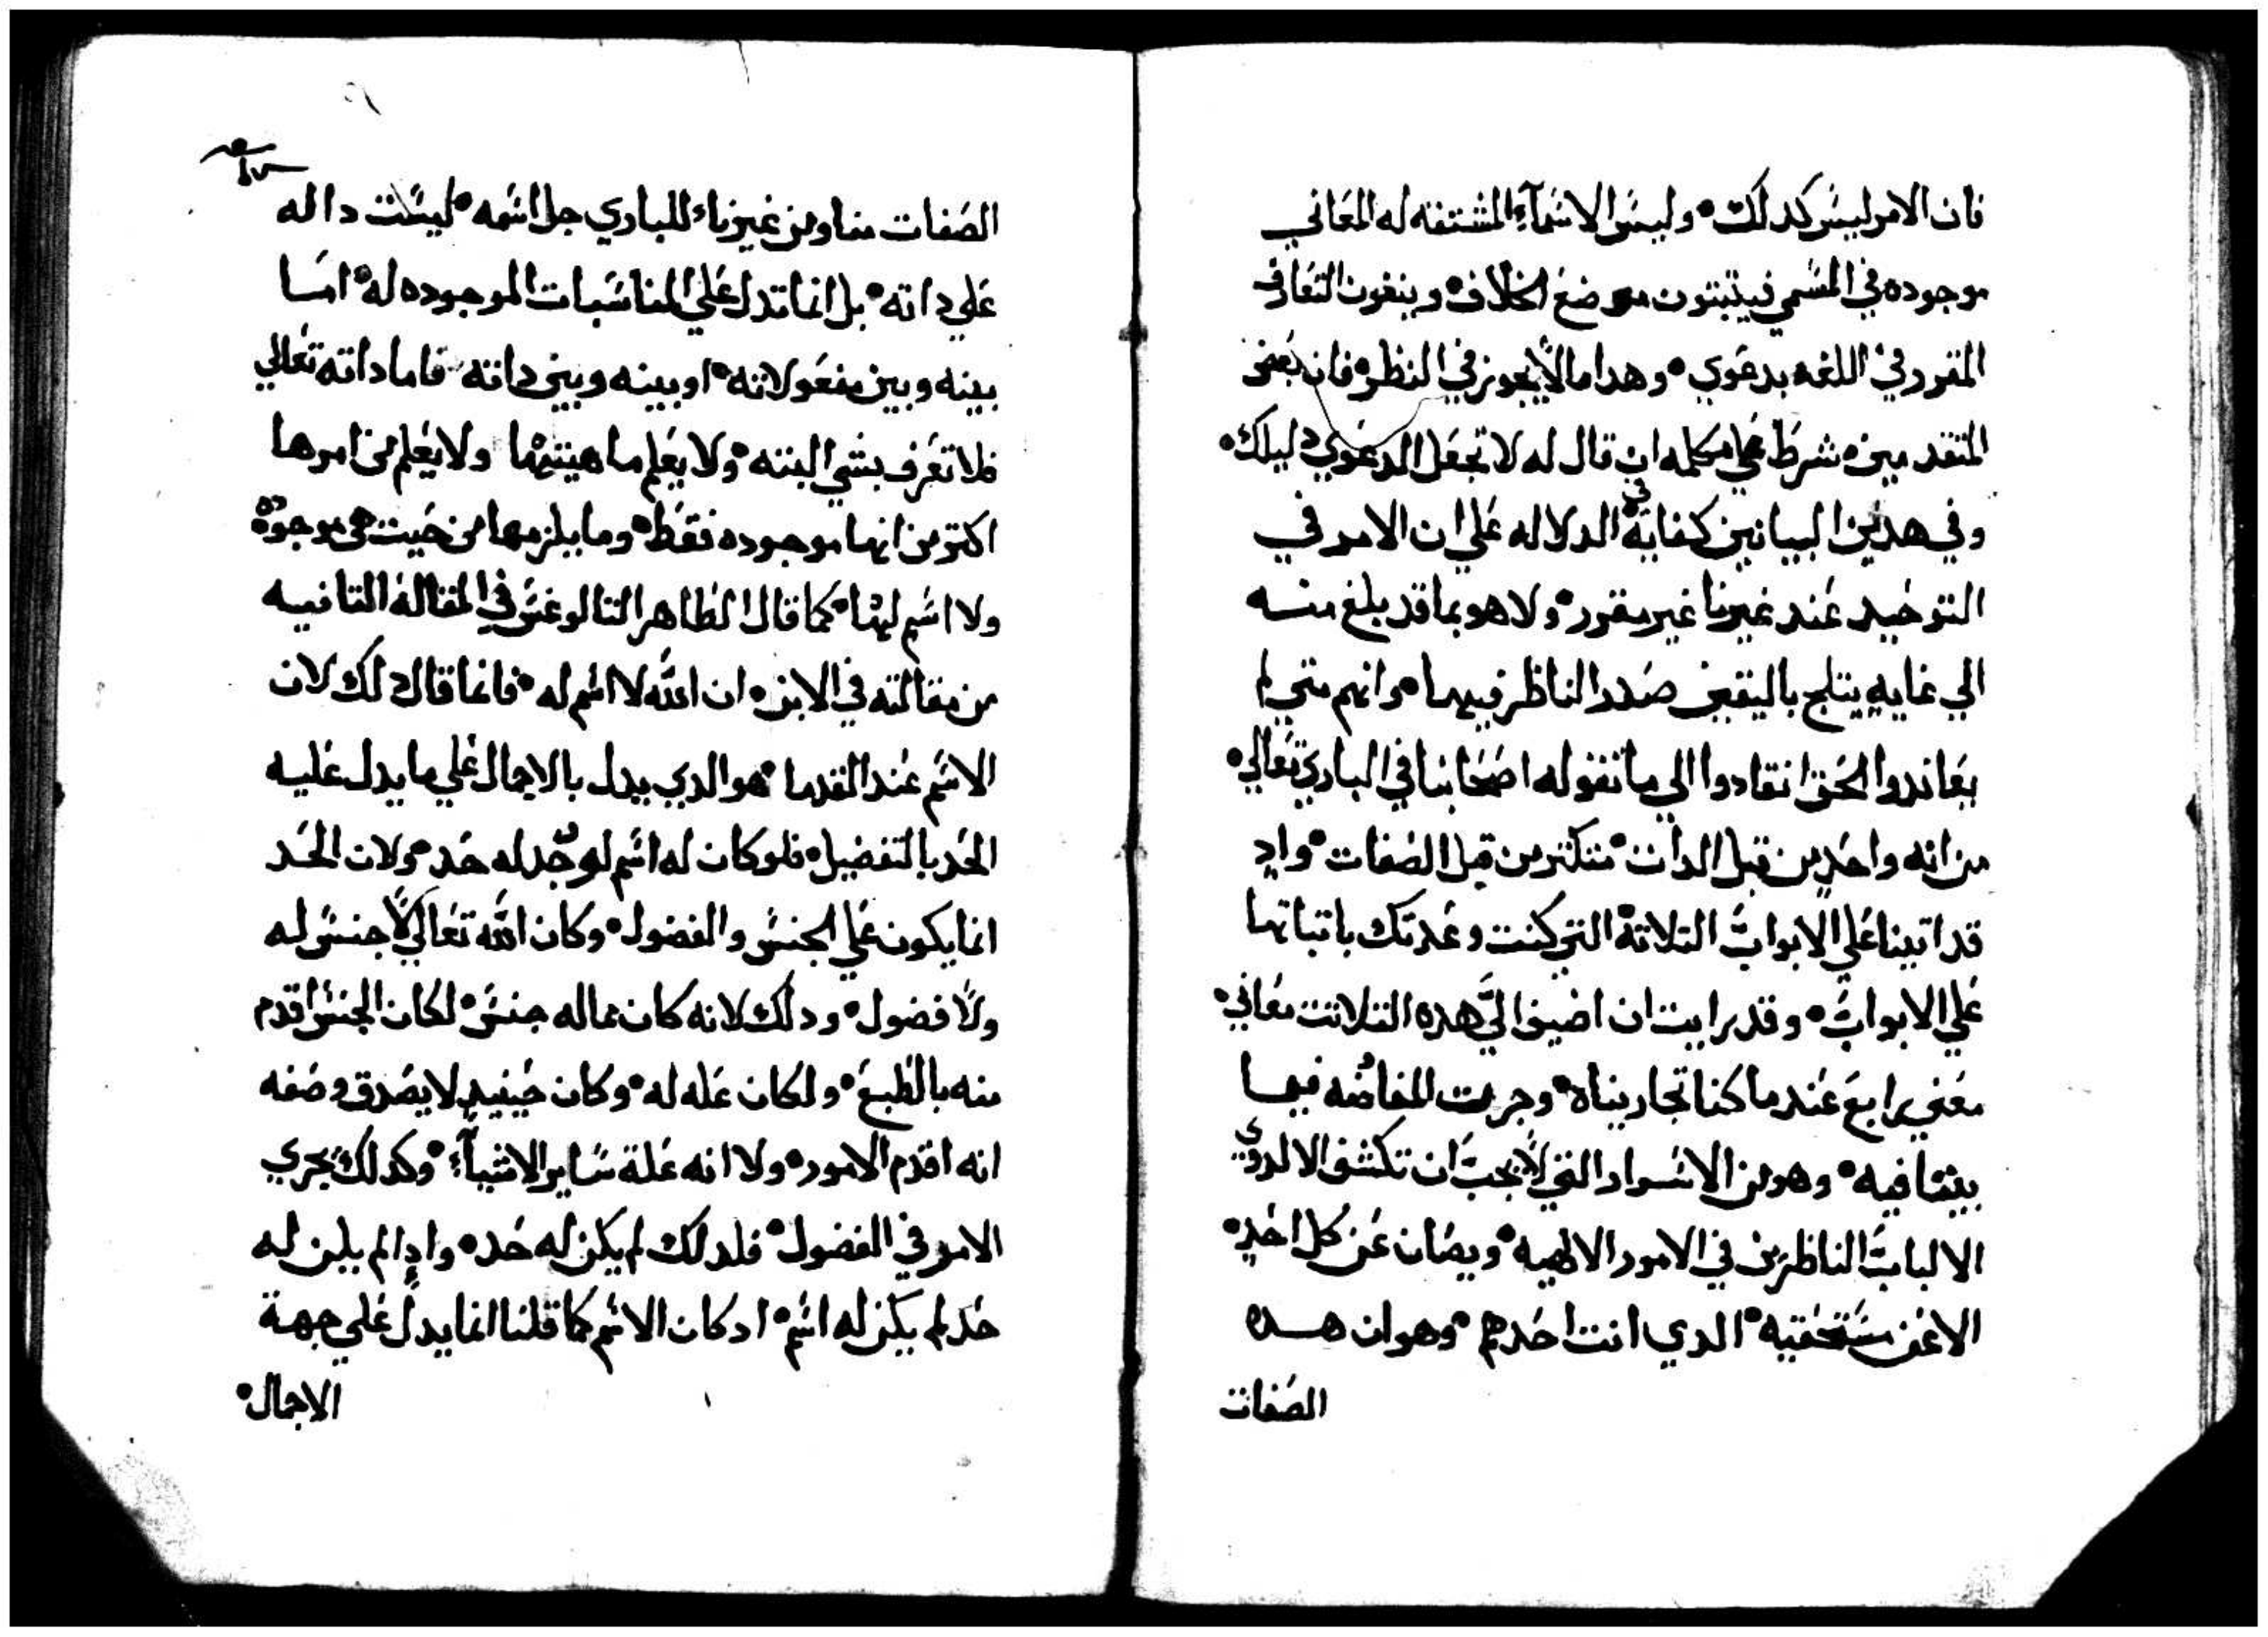 فان الامر ليس كدلك ۰ وليس الاسمآء المشتقه له المعاني
موجوده في المسمي فيتبتون موضع الخلاف وينفون التعارف
المقرر في اللغه بدعوي ۰ وهدا ما لا يجوز في النظر ۰ فان بعض
المتقدمين شرط علي مكلمه ان قال له لا تجعل الدعوي دليلك ۰
وفي هدين البيانين كفاية في الدلاله علي ان الامر في
التوحيد عند غيرنا غير مقرر ۰ ولا هو بما قد بلغ منه
الي غايه يتلج باليقين صدر الناظر فيها ۰ وانهم متي لم
يعاندوا الحق انقادوا الي ما تقوله اصحابنا في الباري تعالي ۰
من انه واحد من قبل الدات ۰ متكتر من قبل الصفات ۰ واد
قد اتينا علي الابواب التلاتة التي كنت وعدتك باتباتها
علي الابواب ۰ وقد رايت ان اضيف الي هده التلاتت معاني ۰
معني رابع عند ما كنا تجاريناه ۰ وجرت المفاضه فيها
بيننا فيه ۰ وهو من الاسرار التي لا يجب ان تكشف الا لدوي
الالباب الناظرين في الامور الالهيه ۰ ويصان عن كل احد ۰
الا عن مستحقيه ۰ الدي انت احدهم ۰ وهو ان هده
الصفات
الصفات منا ومن غيرنا للباري جل اسمه ۰ ليست داله
علي داته ۰ بل انما تدل علي المناسبات الموجوده له ۰ اما
بينه وبين مفعولاته ۰ او بينه وبين داته ۰ فاما داته تعالي
فلا تعرف بشي البته ۰ ولا يعلم ما هيتها ولا يعلم من امرها
اكتر من انها موجوده فقط ۰ وما يلزمها من حيت هي موجوده
ولا اسم لها ۰ كما قال الطاهر التالوغس في المقالة التانيه
من مقالته في الابن ۰ ان الله لا اسم له ۰ فانما قال دلك لان
الاسم عند القدما ۰ هو الدي يدل بالاجمال علي ما يدل عليه
الحد بالتفضيل ۰ فلو كان له اسم لوجد له حد ۰ ولان الحد
انما يكون علي الجنس والفضول ۰ وكان الله تعالي لا جنس له
ولا فضول ۰ ودلك لانه كان مما له جنس ۰ لكان الجنس اقدم
منه بالطبع ۰ ولكان عله له ۰ وكان حينيد لا يصدق وصفه
انه اقدم الامور ۰ ولا انه علة ساير الاشيآء ۰ وكدلك يجري
الامر في الفضول ۰ فلدلك لم يكن له حد ۰ وادا لم يلن له
حد لم يكن له اسم ۰ اد كان الاسم كما قلنا انما يدل علي جهة
الاجمال ۰